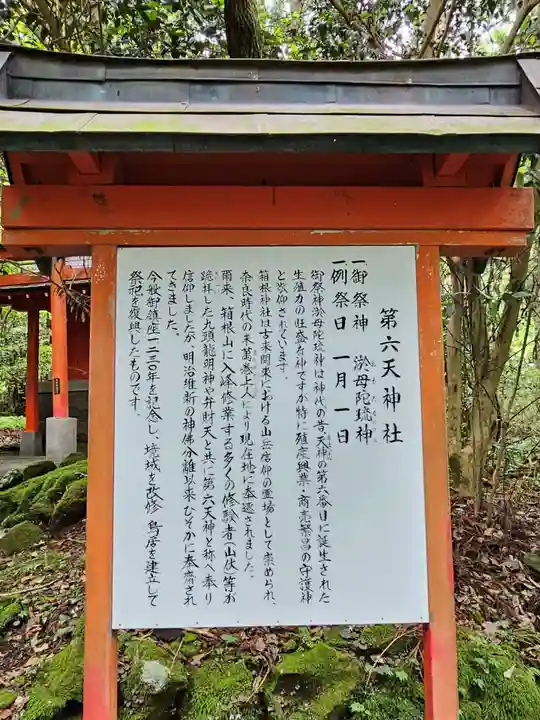 第六天神社
一御祭神 淤母陀琉神
おもだるの
一例祭日 一月一日
御祭神淤母陀琉神は神代の昔天神の第六番目に誕生された
生殖力の旺盛な神ですが特に殖産興業・商売繁昌の守護神
と敬仰されています。
箱根神社は古来関東における山岳信仰の霊場として崇められ、
奈良時代の末萬巻上人により現在地に奉遷されました。
爾来、箱根山に入峰修業する多くの修験者(山伏)等が
跪拝した九頭龍明神や弁財天と共に第六天神と称へ奉り
信仰しましたが、明治維新の神佛分離以来ひそかに奉斎され
てきました。
今般御鎮座一二三〇年を記念し、境域を改修、鳥居を建立して
祭祀を復興したものです。